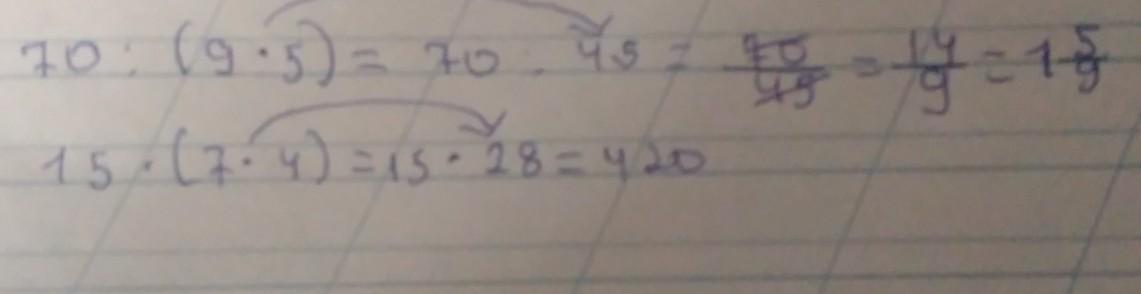 70 : (9 · 5) = 70 : 45 = 70/45 = 14/9 = 1 5/9
15 · (7 · 4) = 15 · 28 = 420